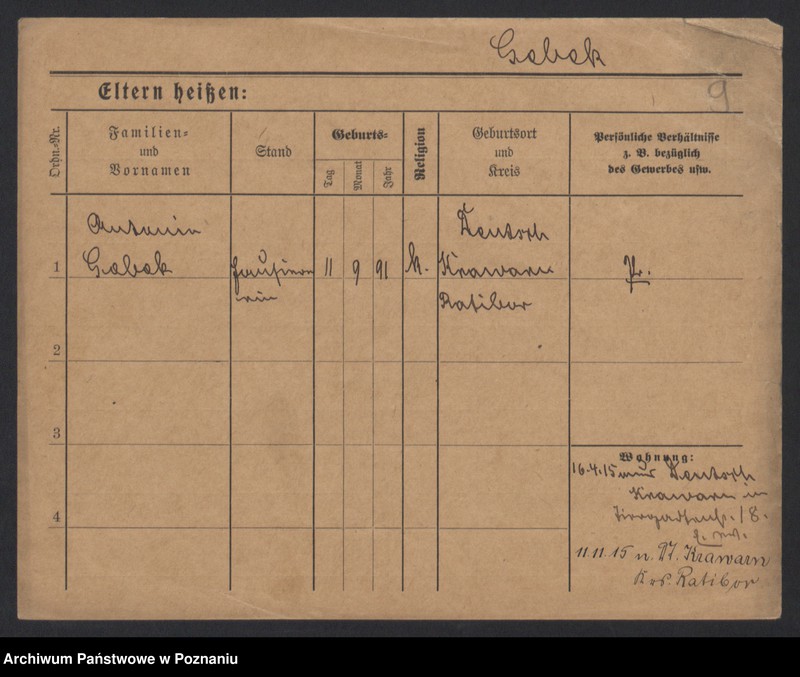 Gabek
9
Eltern heißen:
Ordn.-Nr.
Familien-
und
Vornamen
Stand
Geburts-
Tag
Monat
Jahr
Religion
Geburtsort
und
Kreis
Persönliche Verhältnisse
z. B. bezüglich
des Gewerbes usw.
Antonin
Gabek
11 9 91 k.
Deutsch
Krawarn
Ratibor
Pr.
1
2
3
4
Wohnung:
16.4.15 Deutsch
Krawarn in
18.
11.11.15 n. Dt. Krawarn
Krs. Ratibor
Archiwum Państwowe w Poznaniu